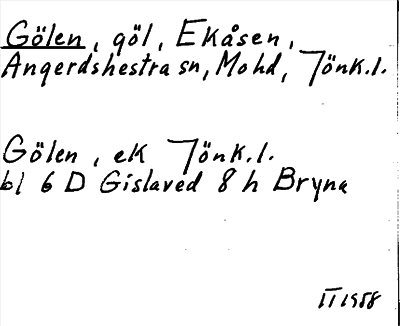 Gölen, göl, Ekåsen,
Angerdshestra sn, Mohd, Jönk.l.
Gölen, ek Jönk.l.
bl 6 D Gislaved 8 h Bryna
II 1958